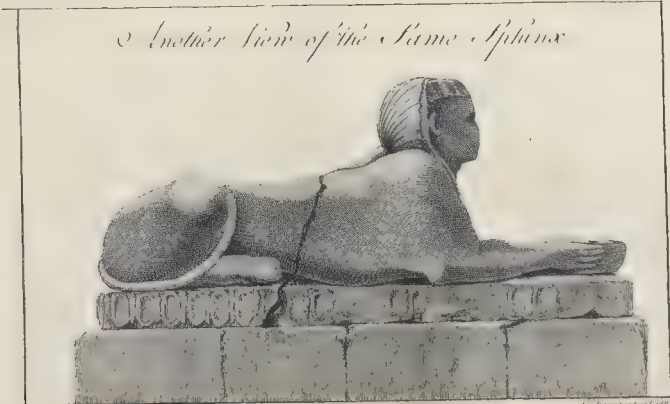 Another View of the Same Sphinx